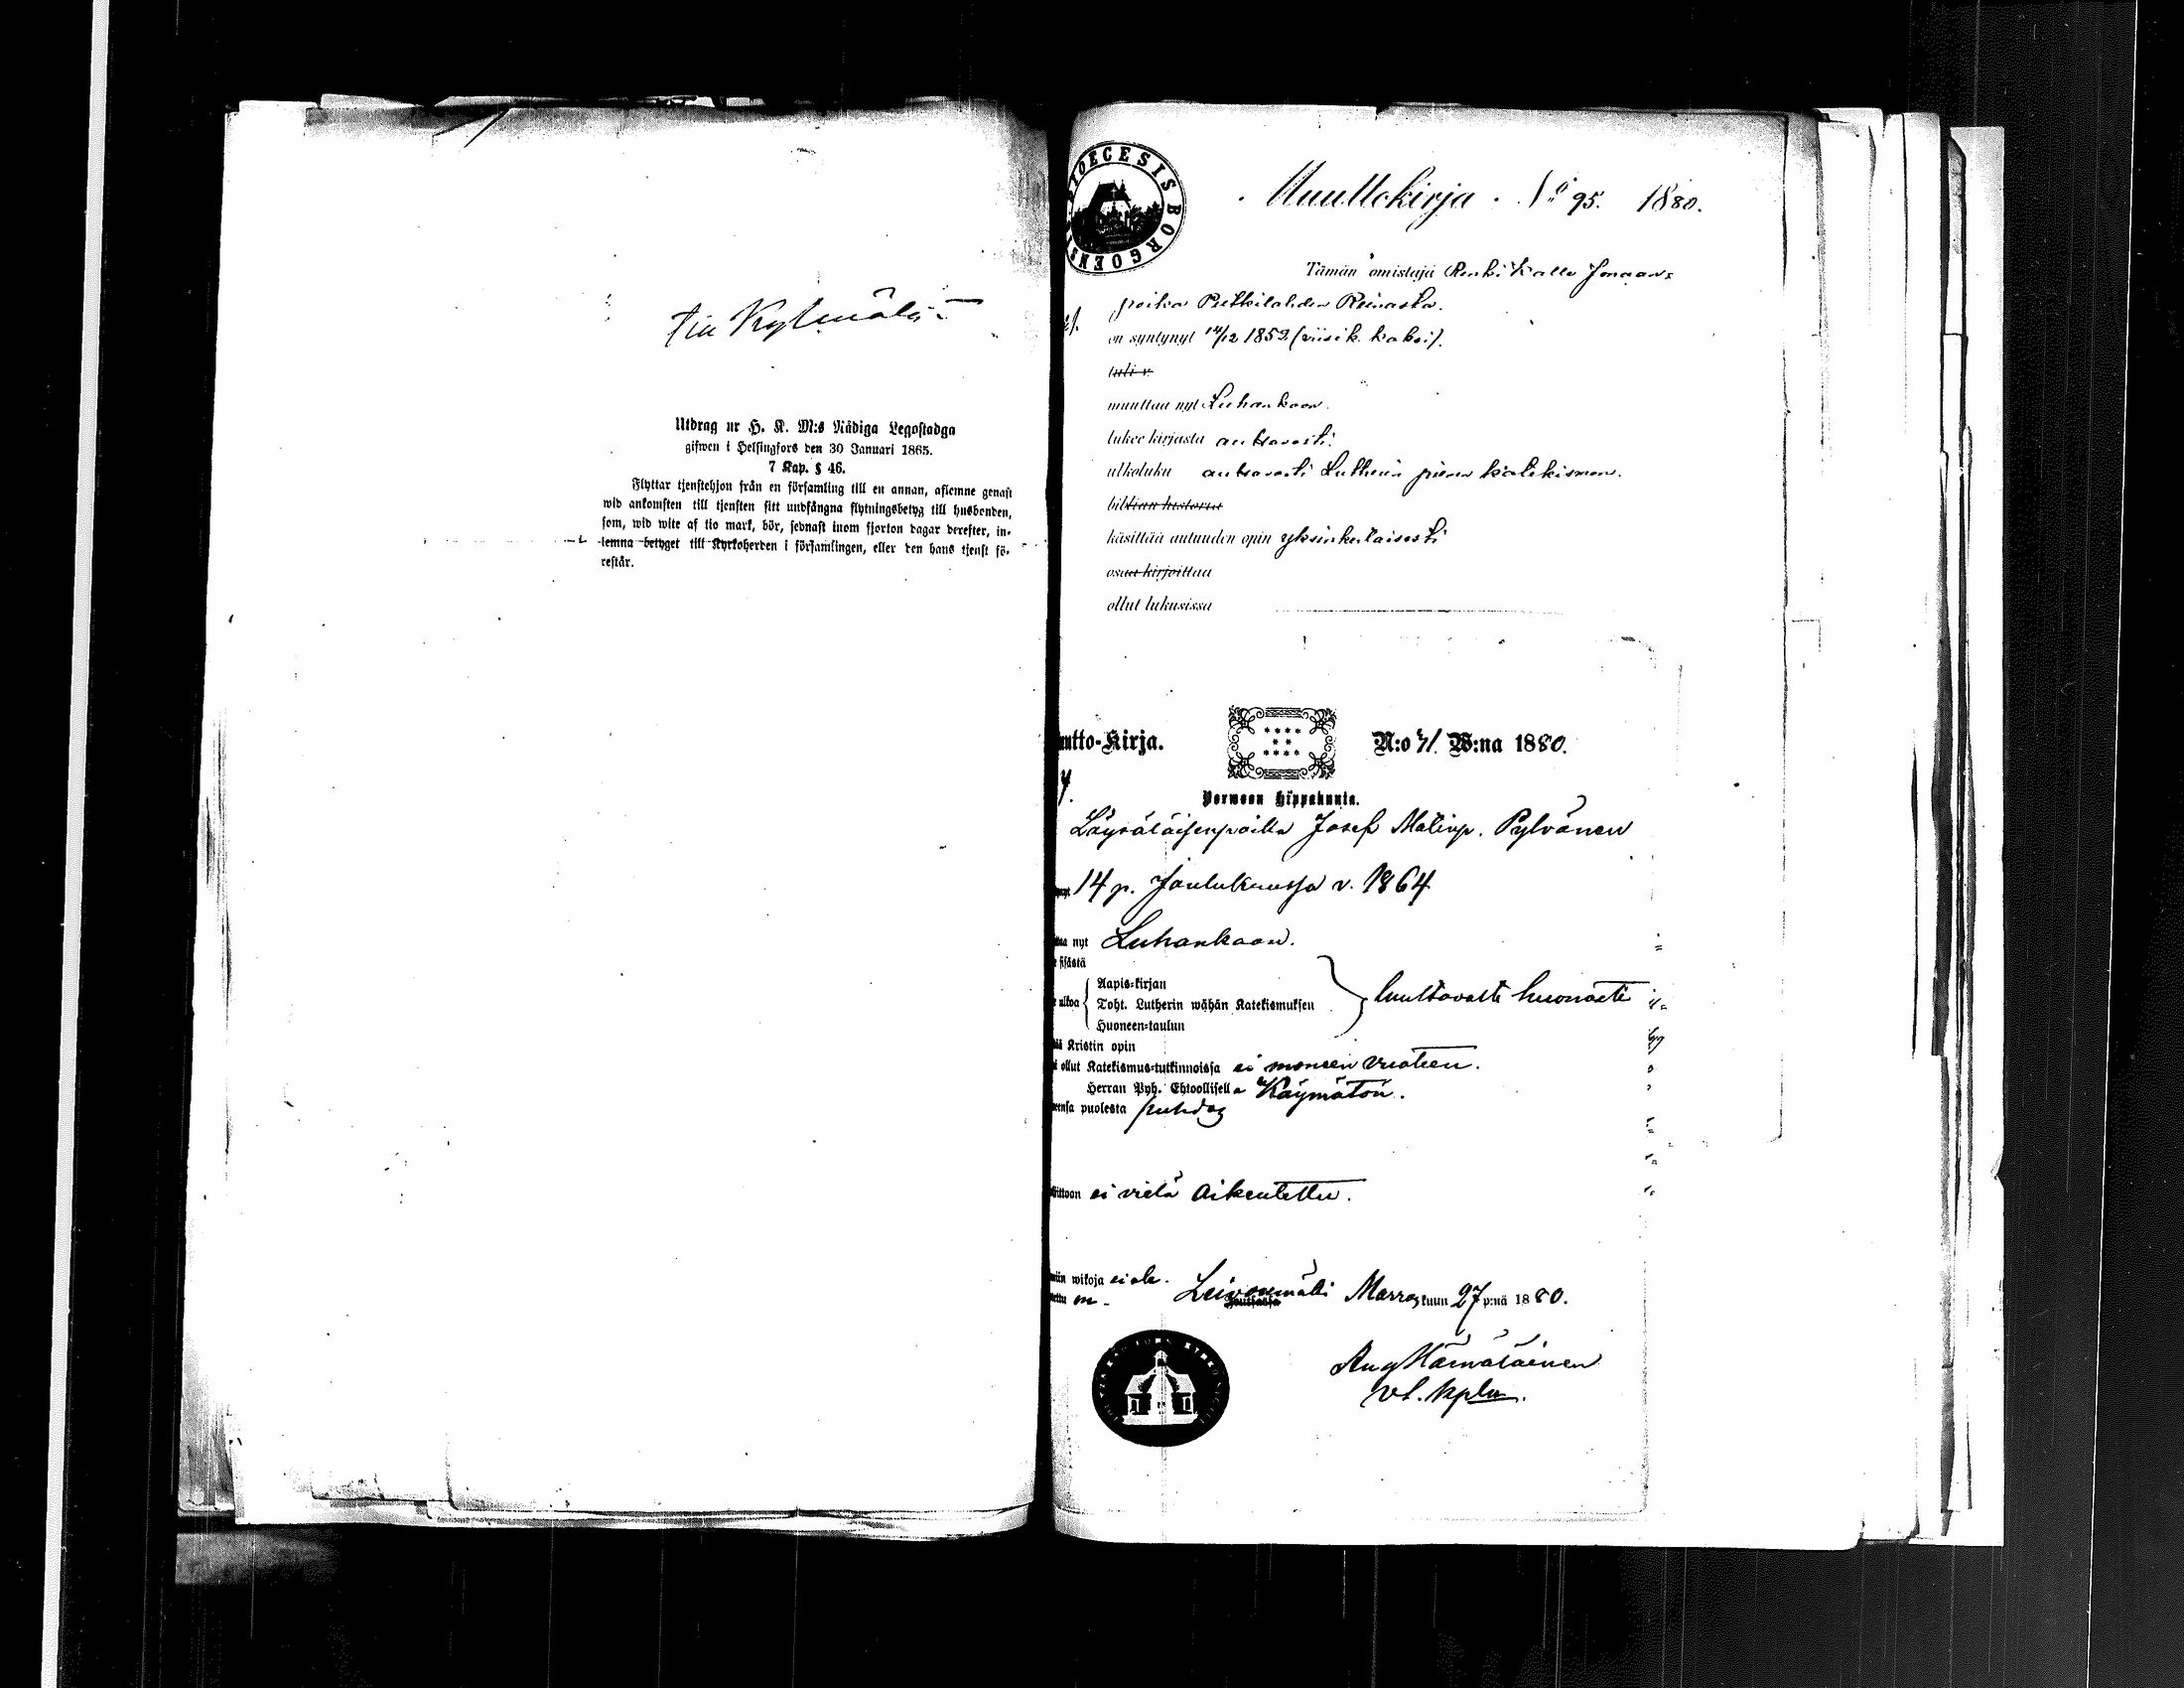 Utdrag ur H. K. M:s Nådiga Legostadga
gifwen i Helsingfors den 30 Januari 1865.
7 Kap. § 46.
Flyttar tjenstehjon från en församling till en annan, aflemne genast
wid ankomsten till tjensten sitt undfångna flyttningsbetyg till husbonden,
som, wid wite af tio mark, bör, sednast inom fjorton dagar derefter, in-
lemna betyget till Kyrkoherden i församlingen, eller den hans tjenst fö-
restår.
DIOECESIS BORGOENS
Muuttokirja. No 95. 1880.
Tämän omistaja Renki Kalle Jonaan-
poika Reinasta.
on syntynyt 14/12 1852 (viisi k. kaksi).
tuli v.
muuttaa nyt Luhankaan.
lukee kirjasta auttavasti.
ulkoluku auttavasti Lutherin pienen katekismon.
biblian historia
käsittää autuuden opin yksinkertaisesti
osaa kirjoittaa
ollut lukusissa
utto-Kirja. N:o 41. W:na 1880.
Porwoon Hippakunta.
Löysäläisenpoika Josef Matinp. Pylvänen
14 p. Joulukuussa v. 1864
nyt Luhankaan.
sisästä
Aapis-kirjan
ulkoa Toht. Lutherin wähän Katekismuksen luultavasti huonosti
Huoneen-taulun
Kristin opin
ollut Katekismus-tutkinnoissa ei moneen vuoteen.
Herran Pyh. Ehtoollisella Käymätön.
puolesta puhdas
ei vielä aikeutettu.
wikoja ei ole.
on. Leivonmäki Marraskuun 27 p:nä 1880.
Aug Hämäläinen
vt. kpln.